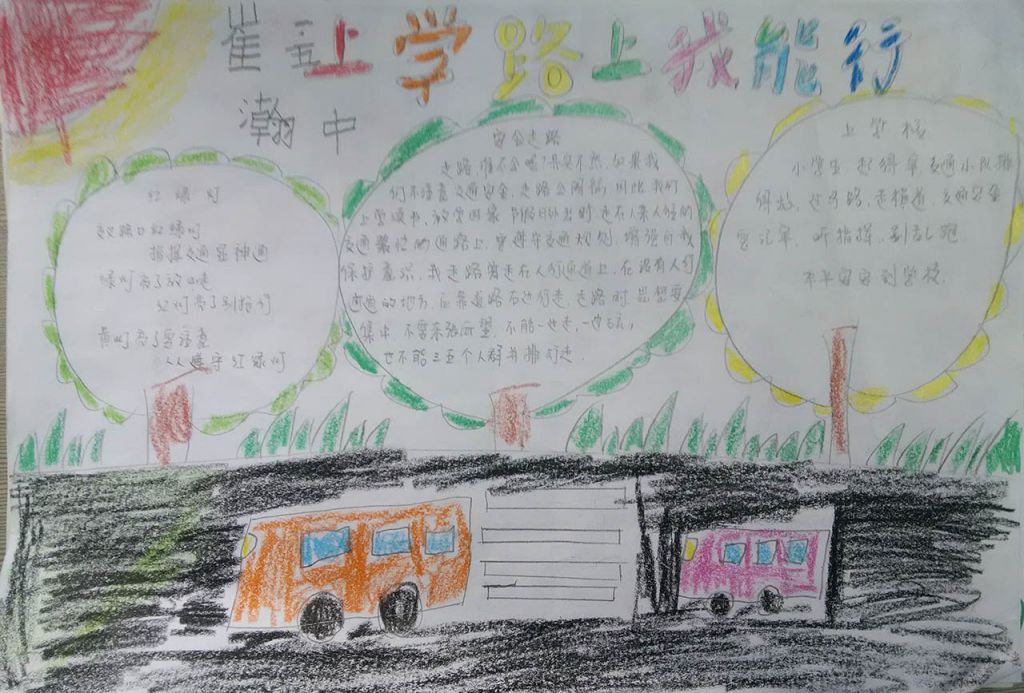 上学路上我能行
崔
三
瀚中
红绿灯
交路口红绿灯
指挥交通显神通
绿灯亮了放心走
红灯亮了别抢行
黄灯亮了要注意
人人遵守红绿灯
安全走路
走路,谁不会呢?其实不然,如果我
们不注意交通安全,走路会闯祸,因此我们
上学读书,放学回家,节假日外出时,走在人来人往的
交通繁忙的道路上,要遵守交通规则,增强自我
保护意识,我走路要走在人行道上,在没有人行
道的地方,应靠道路右边行走,走路时,思想要
集中,不要东张西望,不能一边走,一边玩,
也不能三五个人群并排行走.
上学校
小学生 起得早 交通小队排
得好,过马路,走横道,交通安全
要记牢,听指挥,别乱跑
平平安安到学校.